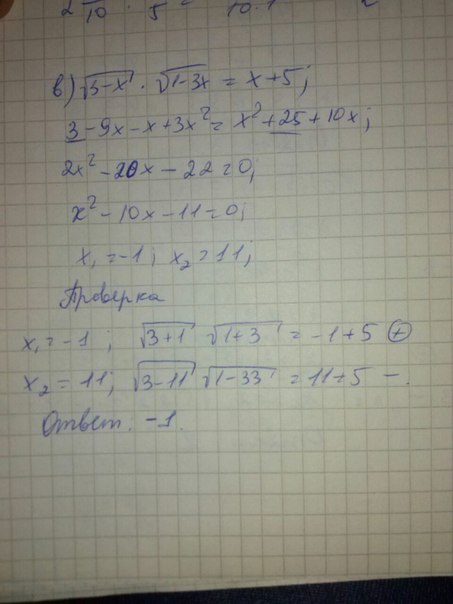 2 10 5 10·1
в) √3-x · √1-3x = x+5;
3-9x-x+3x²=x²+25+10x;
2x²-20x-22=0;
x²-10x-11=0;
x₁=-1; x₂=11;
Проверка
x₁=-1; √3+1 √1+3 = -1+5 ⊕
x₂=11; √3-11 √1-33 = 11+5 -.
Ответ. -1.